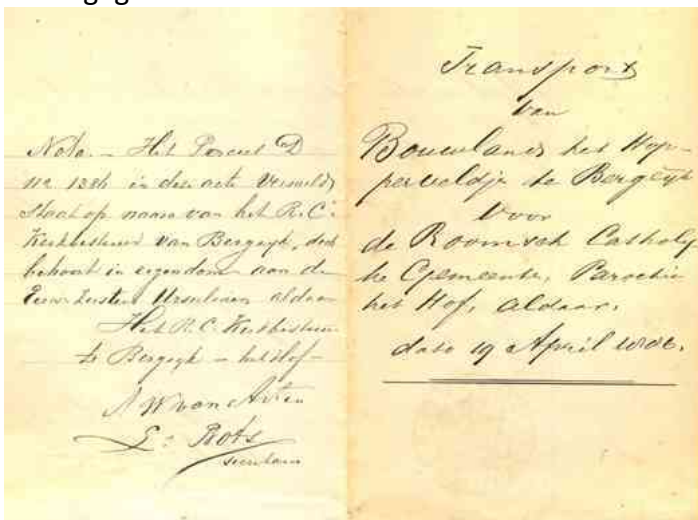 Nota. - Het Perceel D
no 1384 in deze acte vermeld,
staat op naam van het R.C.
Kerkbestuur van Bergeyk, doch
behoort in eigendom aan de
Eerw. Zusters Ursulinen aldaar
Het R.C. Kerkbestuur
te Bergeyk - het Hof -
secretaris
Transport
van
Bouwland het Hop-
perveldje te Bergeyk
voor
de Roomsch Catholy
ke Gemeente, Parochie
het Hof, aldaar.
dato 19 April